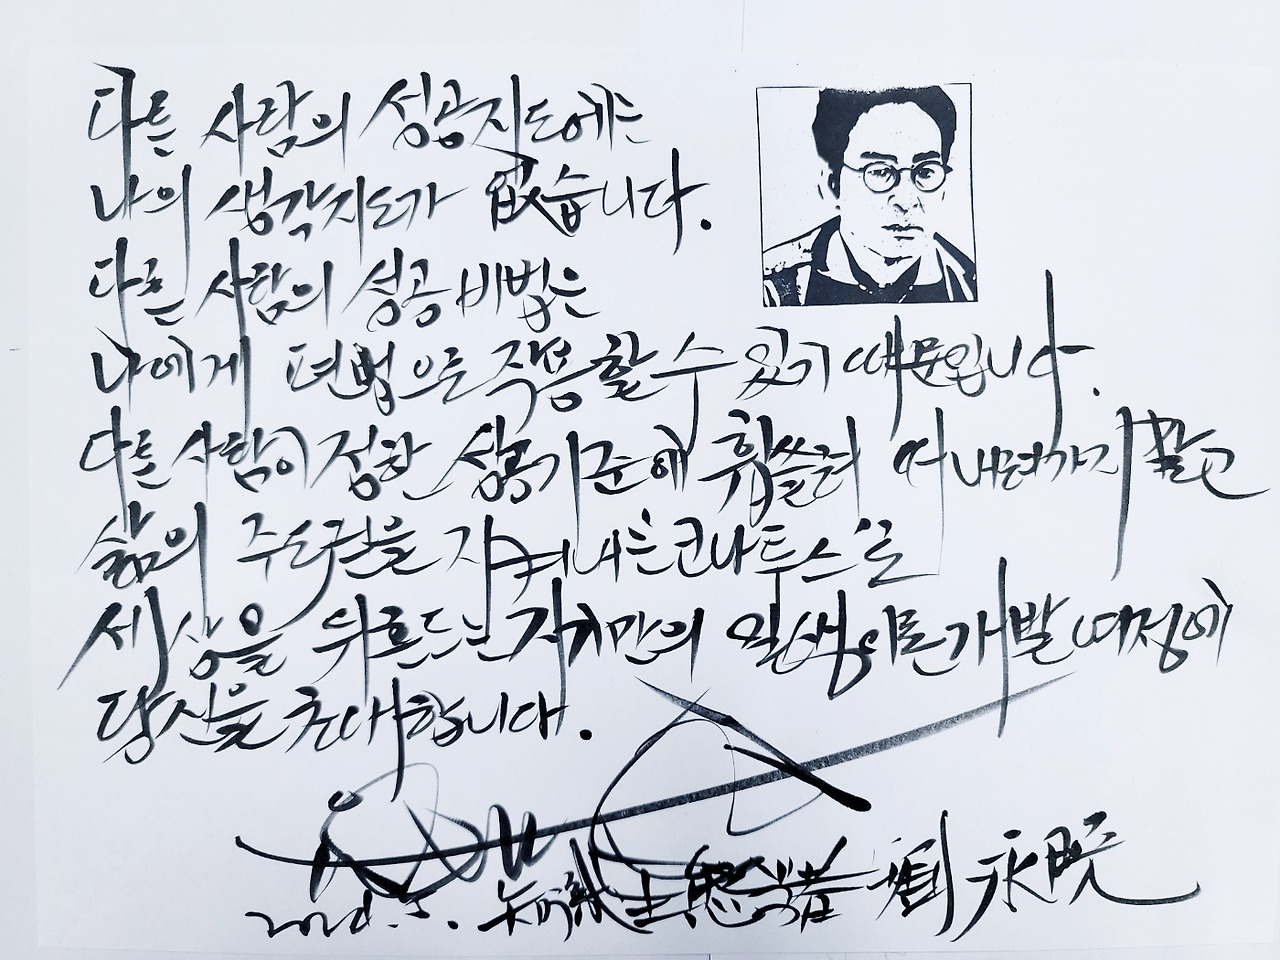 다른 사람의 성공지도에는
나의 생각지도가 없습니다.
다른 사람의 성공 비법은
나에게 편법으로 작용할 수 있기 때문입니다.
다른 사람이 정한 성공기준에 휩쓸려 떠내려가지 말고
삶의 주도권을 지켜내는 코나투스로
세상을 뒤흔드는 자기만의 일생이론 개발 여정에
당신을 초대합니다.
知識生態學者 劉永晩